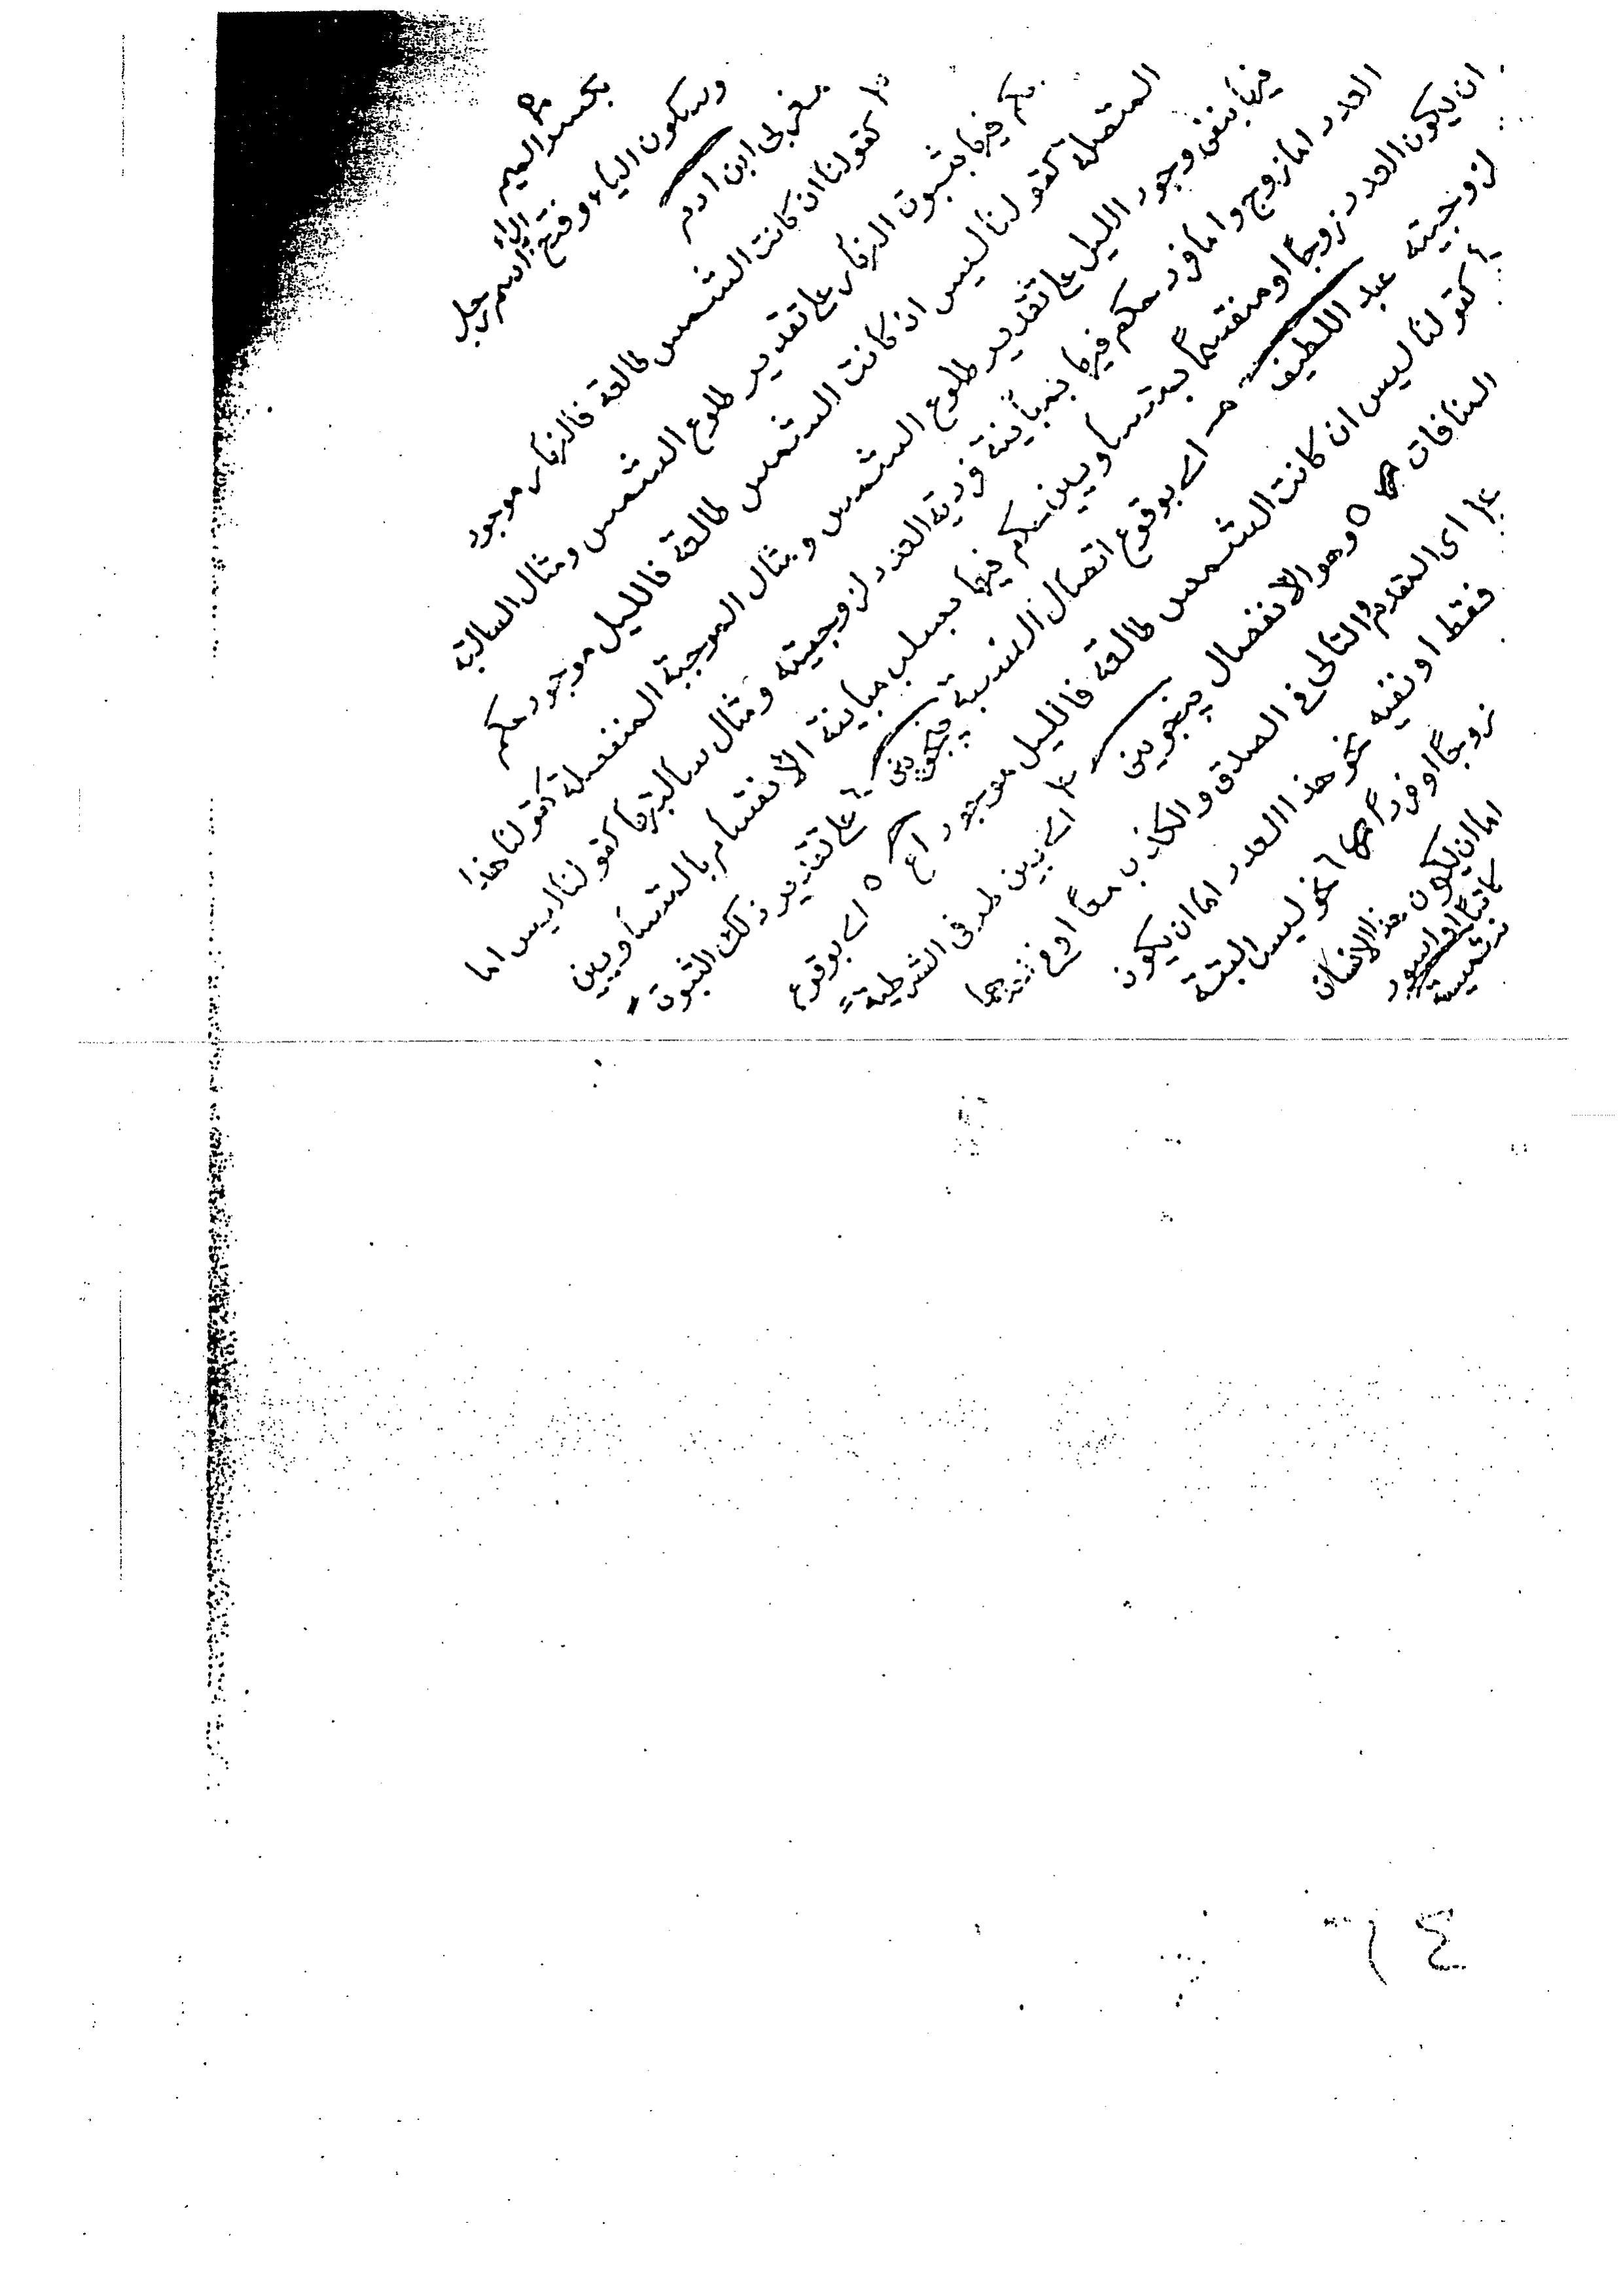 بكسر الميم
وسكون الياء وفتح الراء اسم رجل
مغربى ابن ادم
كقولنا ان كانت الشمس طالعة فالنهار موجود
حكم فيها بثبوت النهار على تقدير طلوع الشمس ومثال السالبة
المتصلة كقولنا ليس ان كانت الشمس طالعة فالليل موجود حكم
فيها بنفى وجود الليل على تقدير طلوع الشمس ومثال الموجبة المنفصلة كقولنا هذا
العدد اما زوج واما فرد حكم فيها بمباينة فردية العدد لزوجيته ومثال سالبتها كقولنا ليس اما
ان يكون العدد زوجا او منقسما بمتساويين حكم فيها بسلب مباينة الانقسام بالمتساويين
لزوجيته عبد اللطيف اے بوقوع اتصال النسبة على تقدير ذلك الثبوت
كقولنا ليس ان كانت الشمس طالعة فالليل موجود اع اے بوقوع
المنافات وهو الانفصال اے بين طرفى الشرطية
اى المقدم والتالى فى الصدق والكذب معا او فى
فقط او نفيه نحو هذا العدد اما ان يكون
زوجا او فردا نحو ليس البتة
اما ان يكون هذا الانسان
كاتبا او اسود
شمسية